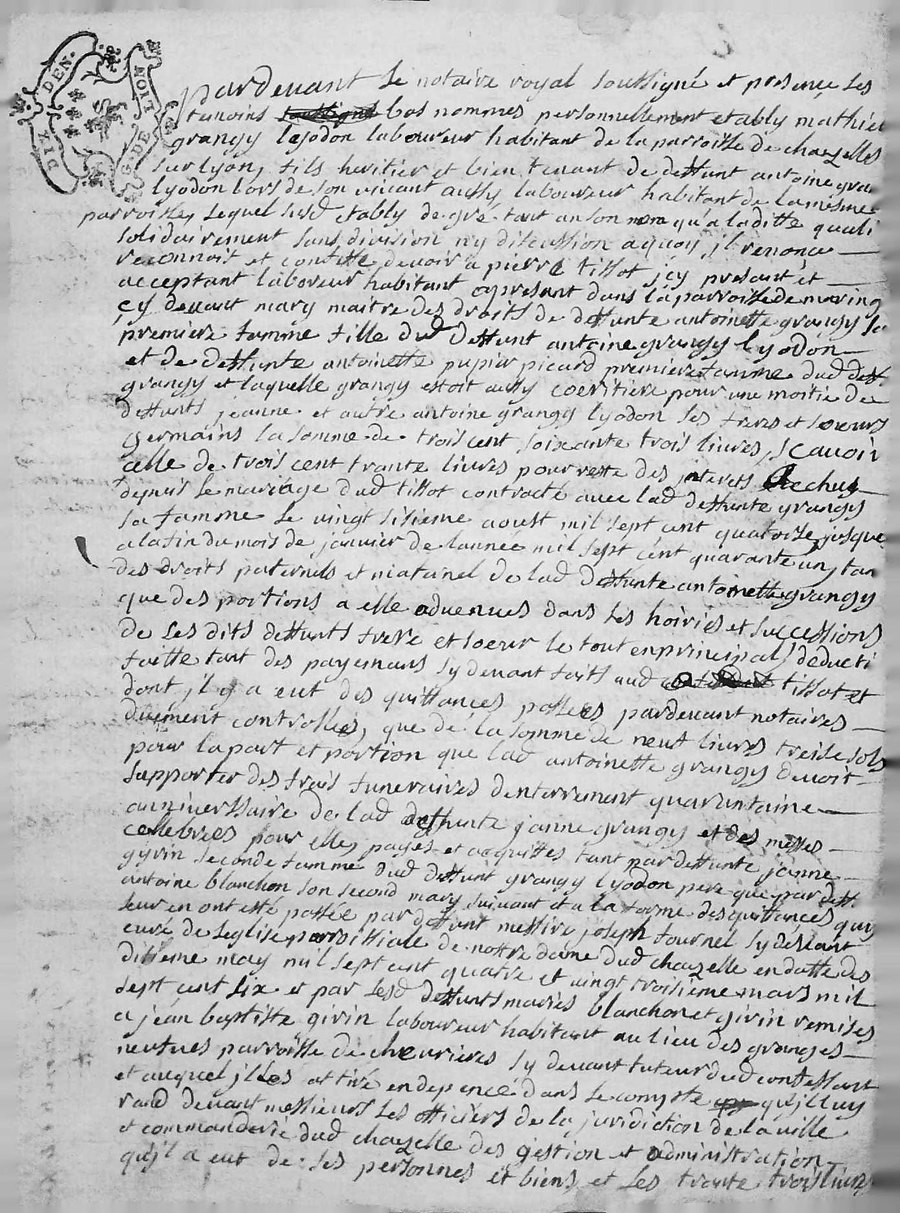 DIX DEN. G. DE LION
pardevant le notaire royal soussigné et presence Les
temoins bas nommes personnellement etably mathieu
grangy lyodon laboureur habitant de la parroisse de chazelles
sur lyon, fils heritier et bien tenant de deffunt antoine gran
lyodon lors de son vivant aussy laboureur habitant de la mesme
parroisse, Lequel susd etably de gré tant an son nom qu'a laditte quali
solidairement sans division n'y discussion a quoy jl renonce
reconnoit et confesse devoir a pierre tissot jcy presant et
acceptant laboreur habitant apresent dans la parroisse de maring
cy devant mary maitre des droits de deffunte antoinette grangy sa
premiere famme fille dud deffunt antoine grangy lyodon
et de deffunte antoinette pupier picard premiere famme dud deff
grangy et laquelle grangy estoit aussy coeritiere pour une moitie de
deffunts jeanne et autre antoine grangy lyodon ses freres et soeurs
germains la somme de trois cent soixante trois livres, scavoir
celle de trois cent trante livres pour reste des jnterets echus
depuis le mariage dud tissot contracté avec lad deffunte grangy
sa famme le vingt sisieme aoust mil sept cent quatorse jusque
a la fin du mois de janvier de lannée mil sept cent quarante un, tan
des droits paternels et maternel de lad deffunte antoinette grangy
que des portions a elle advenues dans les hoiries et successions
de ses dits deffunts frere et soeur le tout en principal, deducti
faitte tant des payemans sy devant faits aud tissot et
dont jl y a eut des quittances passées pardevant notaires
duement controllées, que de la somme de neuf livres treise sols
pour la part et portion que lad antoinette grangy devoit
supporter des frais funeraires denterrement quarantaine
anniverssaire de lad deffunte janne grangy et des messes
cellebrées pour elle, payes et acquittes tant par deffunte jeanne
gyrin seconde famme dud deffunt grangy lyodon pere que par deff
antoine blanchon son second mary suivant et a la forme des quittances qui
leur en ont esté passée par deffunt messire joseph fournel sy devant
curé de leglise parroissiale de nostre dame dud chazelle en datte des
disieme may mil sept cent quatre et vingt troisieme mars mil
sept cent six et par lesd deffunts mariés blanchon et girin remises
a jean baptiste girin laboureur habitant au lieu des granges
neufves parroisse de chevrieres sy devant tuteur dud confessant
et auquel jl les at tiré en depence dans le compte qu'jl luy
rand devant messieurs les officiers de la juridiction de la ville
et commanderie dud chazelle des gestion et administration
qu'jl a eut de ses personnes et biens et les trante trois livres